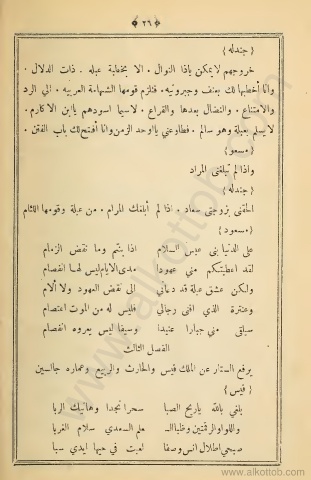 ﴿ ٢٦ ﴾
{ جندله }
خروجهم لا يمكن ياذا النوال . الا بخطبة عبله . ذات الدلال .
وانا أخطبها لك بعنف وجبروتيه . فتلزم قومها الشهامة العربيه . الى الرد
والامتناع . والنضال بعدها والقراع . لاسيما اسودهم ياابن الاكارم .
لا يسلم بعبلة وهو سالم . فطاوعني ياأوحد الزمن وانا أفتح لك باب الفتن .
{ مسعود }
واذا لم تبلغني المراد
{ جندله }
الحقني بزوجتي سعاد . اذا لم أبلغك المرام . من عبلة وقومها اللئام
{ مسعود }
على الدنيا بني عبس السلام اذا بنتم وما نقض الزمام
لقد اعطيتكم مني عهودا مدى الايام ليس لها انفصام
ولكن عشق عبلة قد دعاني الى نقض العهود ولا ألام
وعنترة الذي افنى رجالي فليس له من الموت اعتصام
سيلقى مني جبارا عنيدا وسيفا ليس يعروه انفصام
الفصل الثالث
يرفع الستار عن الملك قيس والحارث والربيع وعماره جالسين
{ قيس }
بلغي بالله ياريح الصبا سحرا نجدا وهاتيك الربا
واللوا والرقمتين وظبا الـ ـعلم السعدي سلام الغربا
صبحي اطلال انس وصفا لعبت في حيها ايدي سبا
www.alkottob.com
www.alkottob.com